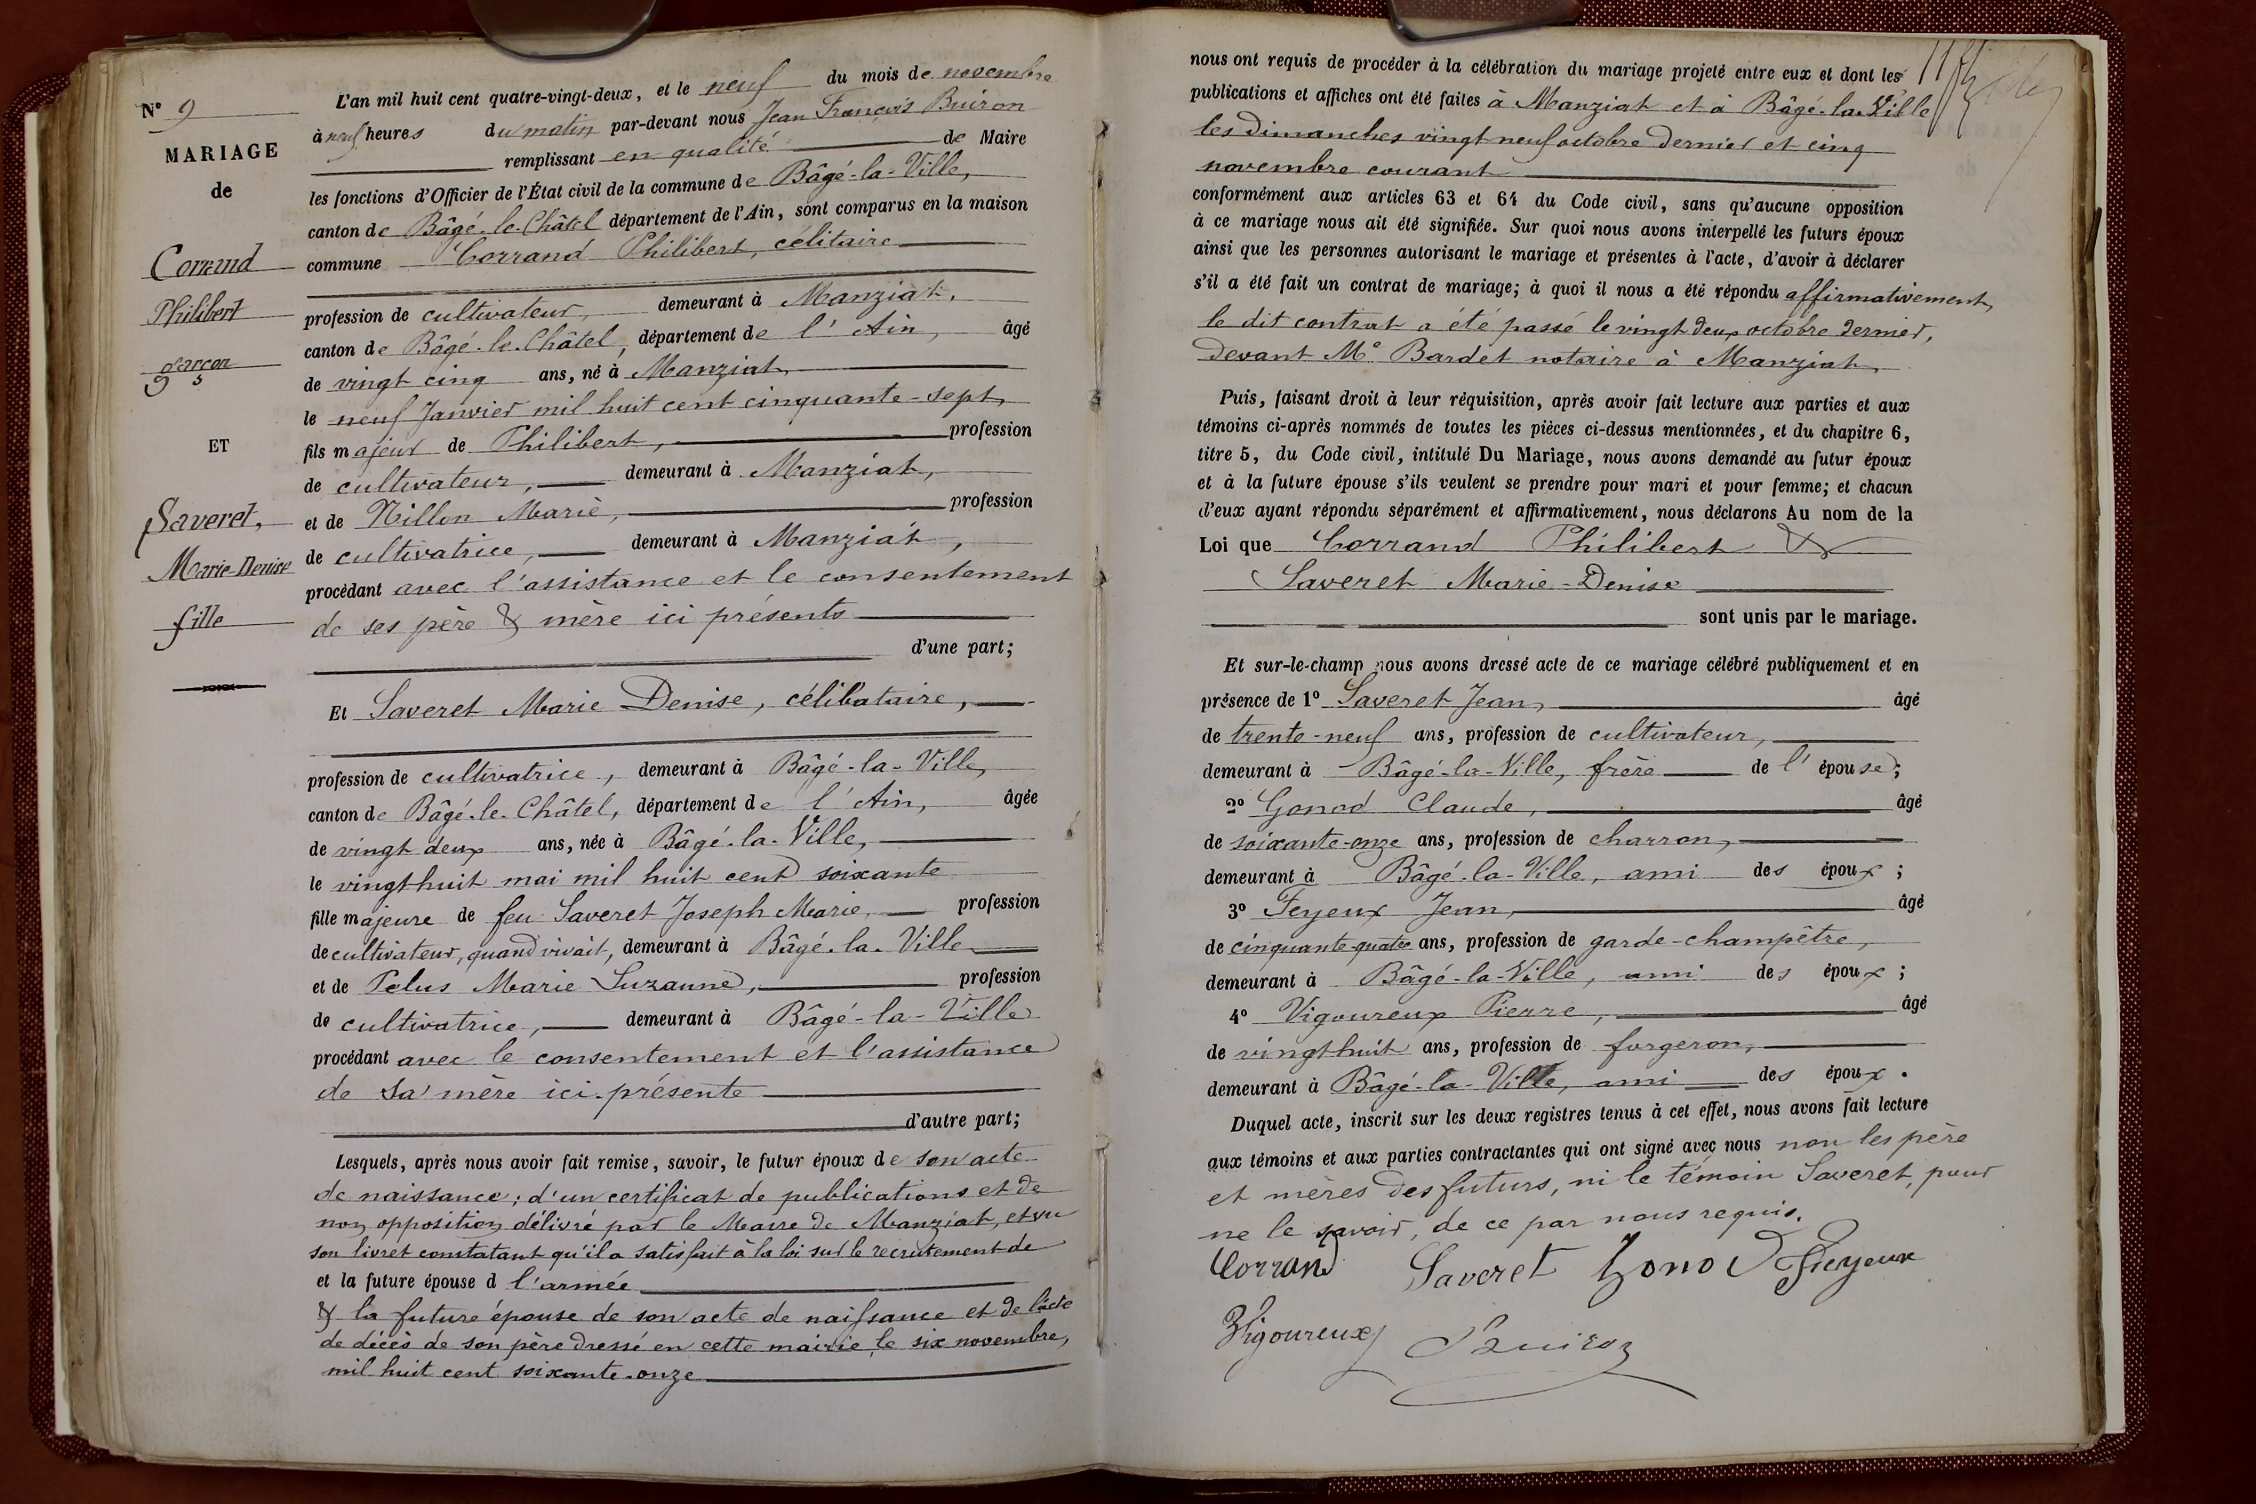 N° 9
MARIAGE
de
Corrand
Philibert
garçon
ET
Saveret,
Marie-Denise
fille
L'an mil huit cent quatre-vingt-deux, et le neuf du mois de novembre
à neuf heures du matin par-devant nous Jean François Buiron
remplissant en qualité de Maire
les fonctions d'Officier de l'État civil de la commune de Bâgé-la-Ville,
canton de Bâgé-le-Châtel département de l'Ain, sont comparus en la maison
commune Corrand Philibert, célitaire
profession de cultivateur, demeurant à Manziat,
canton de Bâgé-le-Châtel, département de l'Ain, âgé
de vingt cinq ans, né à Manziat,
le neuf Janvier mil huit cent cinquante-sept,
fils majeur de Philibert, profession
de cultivateur, demeurant à Manziat,
et de Nillon Marie, profession
de cultivatrice, demeurant à Manziat,
procédant avec l'assistance et le consentement
de ses père & mère ici présents
d'une part;
Et Saveret Marie Denise, célibataire,
profession de cultivatrice, demeurant à Bâgé-la-Ville,
canton de Bâgé-le-Châtel, département de l'Ain, âgée
de vingt deux ans, née à Bâgé-la-Ville,
le vingt huit mai mil huit cent soixante
fille majeure de feu Saveret Joseph Marie, profession
de cultivateur, quand vivait, demeurant à Bâgé-la-Ville
et de Pelus Marie Suzanne, profession
de cultivatrice, demeurant à Bâgé-la-Ville
procédant avec le consentement et l'assistance
de sa mère ici présente
d'autre part;
Lesquels, après nous avoir fait remise, savoir, le futur époux de son acte
de naissance; d'un certificat de publications et de
non opposition délivré par le Maire de Manziat, et vu
son livret constatant qu'il a satisfait à la loi sur le recrutement de
et la future épouse d l'armée
& la future épouse de son acte de naissance et de l'acte
de décès de son père dressé en cette mairie le six novembre,
mil huit cent soixante-onze
nous ont requis de procéder à la célébration du mariage projeté entre eux et dont les
publications et affiches ont été faites à Manziat et à Bâgé-la-Ville
les dimanches vingt neuf octobre dernier et cinq
novembre courant
conformément aux articles 63 et 64 du Code civil, sans qu'aucune opposition
à ce mariage nous ait été signifiée. Sur quoi nous avons interpellé les futurs époux
ainsi que les personnes autorisant le mariage et présentes à l'acte, d'avoir à déclarer
s'il a été fait un contrat de mariage; à quoi il nous a été répondu affirmativement,
le dit contrat a été passé le vingt deux octobre dernier,
devant Me Bardet notaire à Manziat
Puis, faisant droit à leur réquisition, après avoir fait lecture aux parties et aux
témoins ci-après nommés de toutes les pièces ci-dessus mentionnées, et du chapitre 6,
titre 5, du Code civil, intitulé Du Mariage, nous avons demandé au futur époux
et à la future épouse s'ils veulent se prendre pour mari et pour femme; et chacun
d'eux ayant répondu séparément et affirmativement, nous déclarons Au nom de la
Loi que Corrand Philibert &
Saveret Marie-Denise
sont unis par le mariage.
Et sur-le-champ nous avons dressé acte de ce mariage célébré publiquement et en
présence de 1° Saveret Jean, âgé
de trente-neuf ans, profession de cultivateur,
demeurant à Bâgé-la-Ville, frère de l'épouse;
2° Gonod Claude, âgé
de soixante-onze ans, profession de charron,
demeurant à Bâgé-la-Ville, ami des époux;
3° Feyeux Jean, âgé
de cinquante-quatre ans, profession de garde-champêtre,
demeurant à Bâgé-la-Ville, ami des époux;
4° Vigoureux Pierre, âgé
de vingt huit ans, profession de forgeron,
demeurant à Bâgé-la-Ville, ami des époux.
Duquel acte, inscrit sur les deux registres tenus à cet effet, nous avons fait lecture
aux témoins et aux parties contractantes qui ont signé avec nous non les père
et mères des futurs, ni le témoin Saveret, pour
ne le savoir, de ce par nous requis.
Corrand Saveret Gonod Feyeux
Vigoureux Buiron